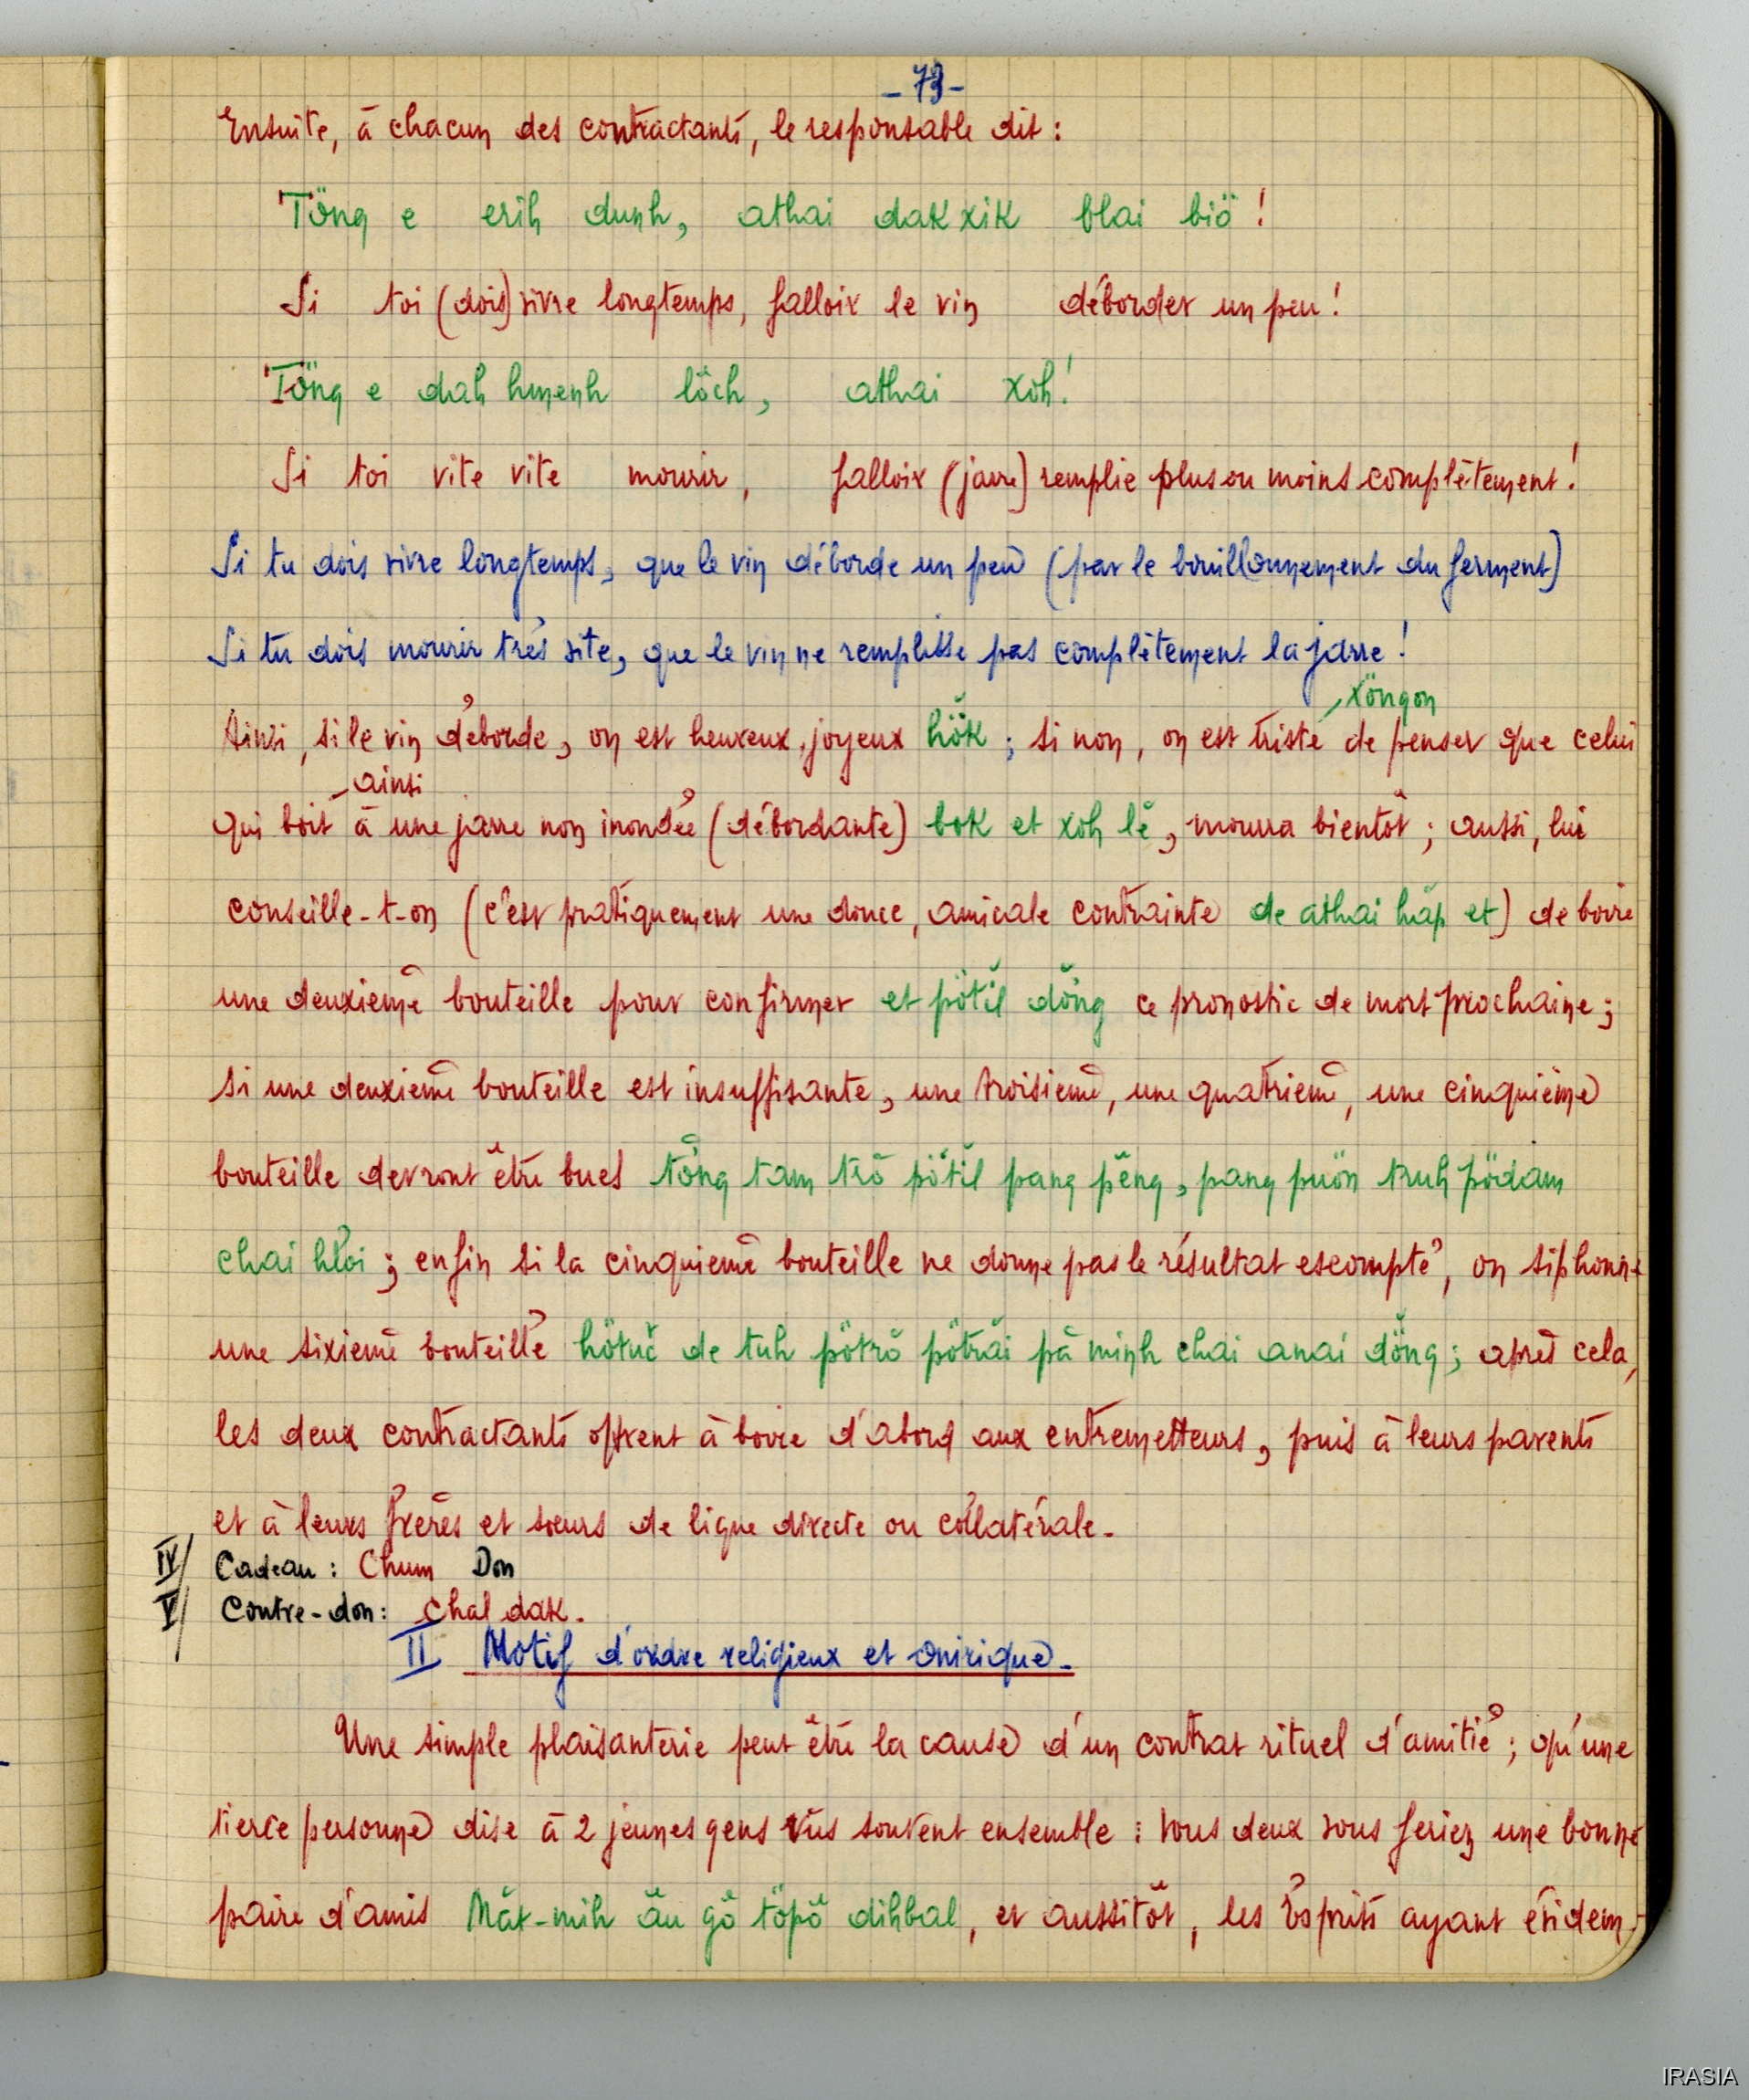 - 73 -
Ensuite, à chacun des contractants, le responsable dit :
Töng e erih dunh, athai dak xik blai biö !
Si toi (dois) vivre longtemps, falloir le vin déborder un peu !
Töng e dah hmenh löch, athai xoh !
Si toi vite vite mourir, falloir (jarre) remplie plus ou moins complètement !
Si tu dois vivre longtemps, que le vin déborde un peu (par le bouillonnement du ferment)
Si tu dois mourir très vite, que le vin ne remplisse pas complètement la jarre !
xöngon
Ainsi, si le vin déborde, on est heureux, joyeux hök ; si non, on est triste de penser que celui
ainsi
qui boit à une jarre non inondée (débordante) bok et xoh lĕ, mourra bientôt ; aussi, lui
conseille-t-on (c'est pratiquement une douce, amicale contrainte de athai hăp et) de boire
une deuxième bouteille pour confirmer et pötil döng ce pronostic de mort prochaine ;
si une deuxième bouteille est insuffisante, une troisième, une quatrième, une cinquième
bouteille devront être bues töng tam trŏ pötil pang pêng, pang puön truh pödam
chai hloi ; enfin si la cinquième bouteille ne donne pas le résultat escompté, on siphonne
une sixième bouteille hötuč de tuh pötrŏ pötrăi pă minh chai anai döng ; après cela,
les deux contractants offrent à boire d'abord aux entremetteurs, puis à leurs parents
et à leurs frères et sœurs de ligne directe ou collatérale.
IV/ Cadeau : Chum Don
V/ Contre-don : Chal dak.
II Motif d'ordre religieux et onirique.
Une simple plaisanterie peut être la cause d'un contrat rituel d'amitié ; qu'une
tierce personne dise à 2 jeunes gens vus souvent ensemble : vous deux vous feriez une bonne
paire d'amis Măr-mih ău gŏ töpŏ dihbal, et aussitôt, les Esprits ayant évidem-
IRASIA